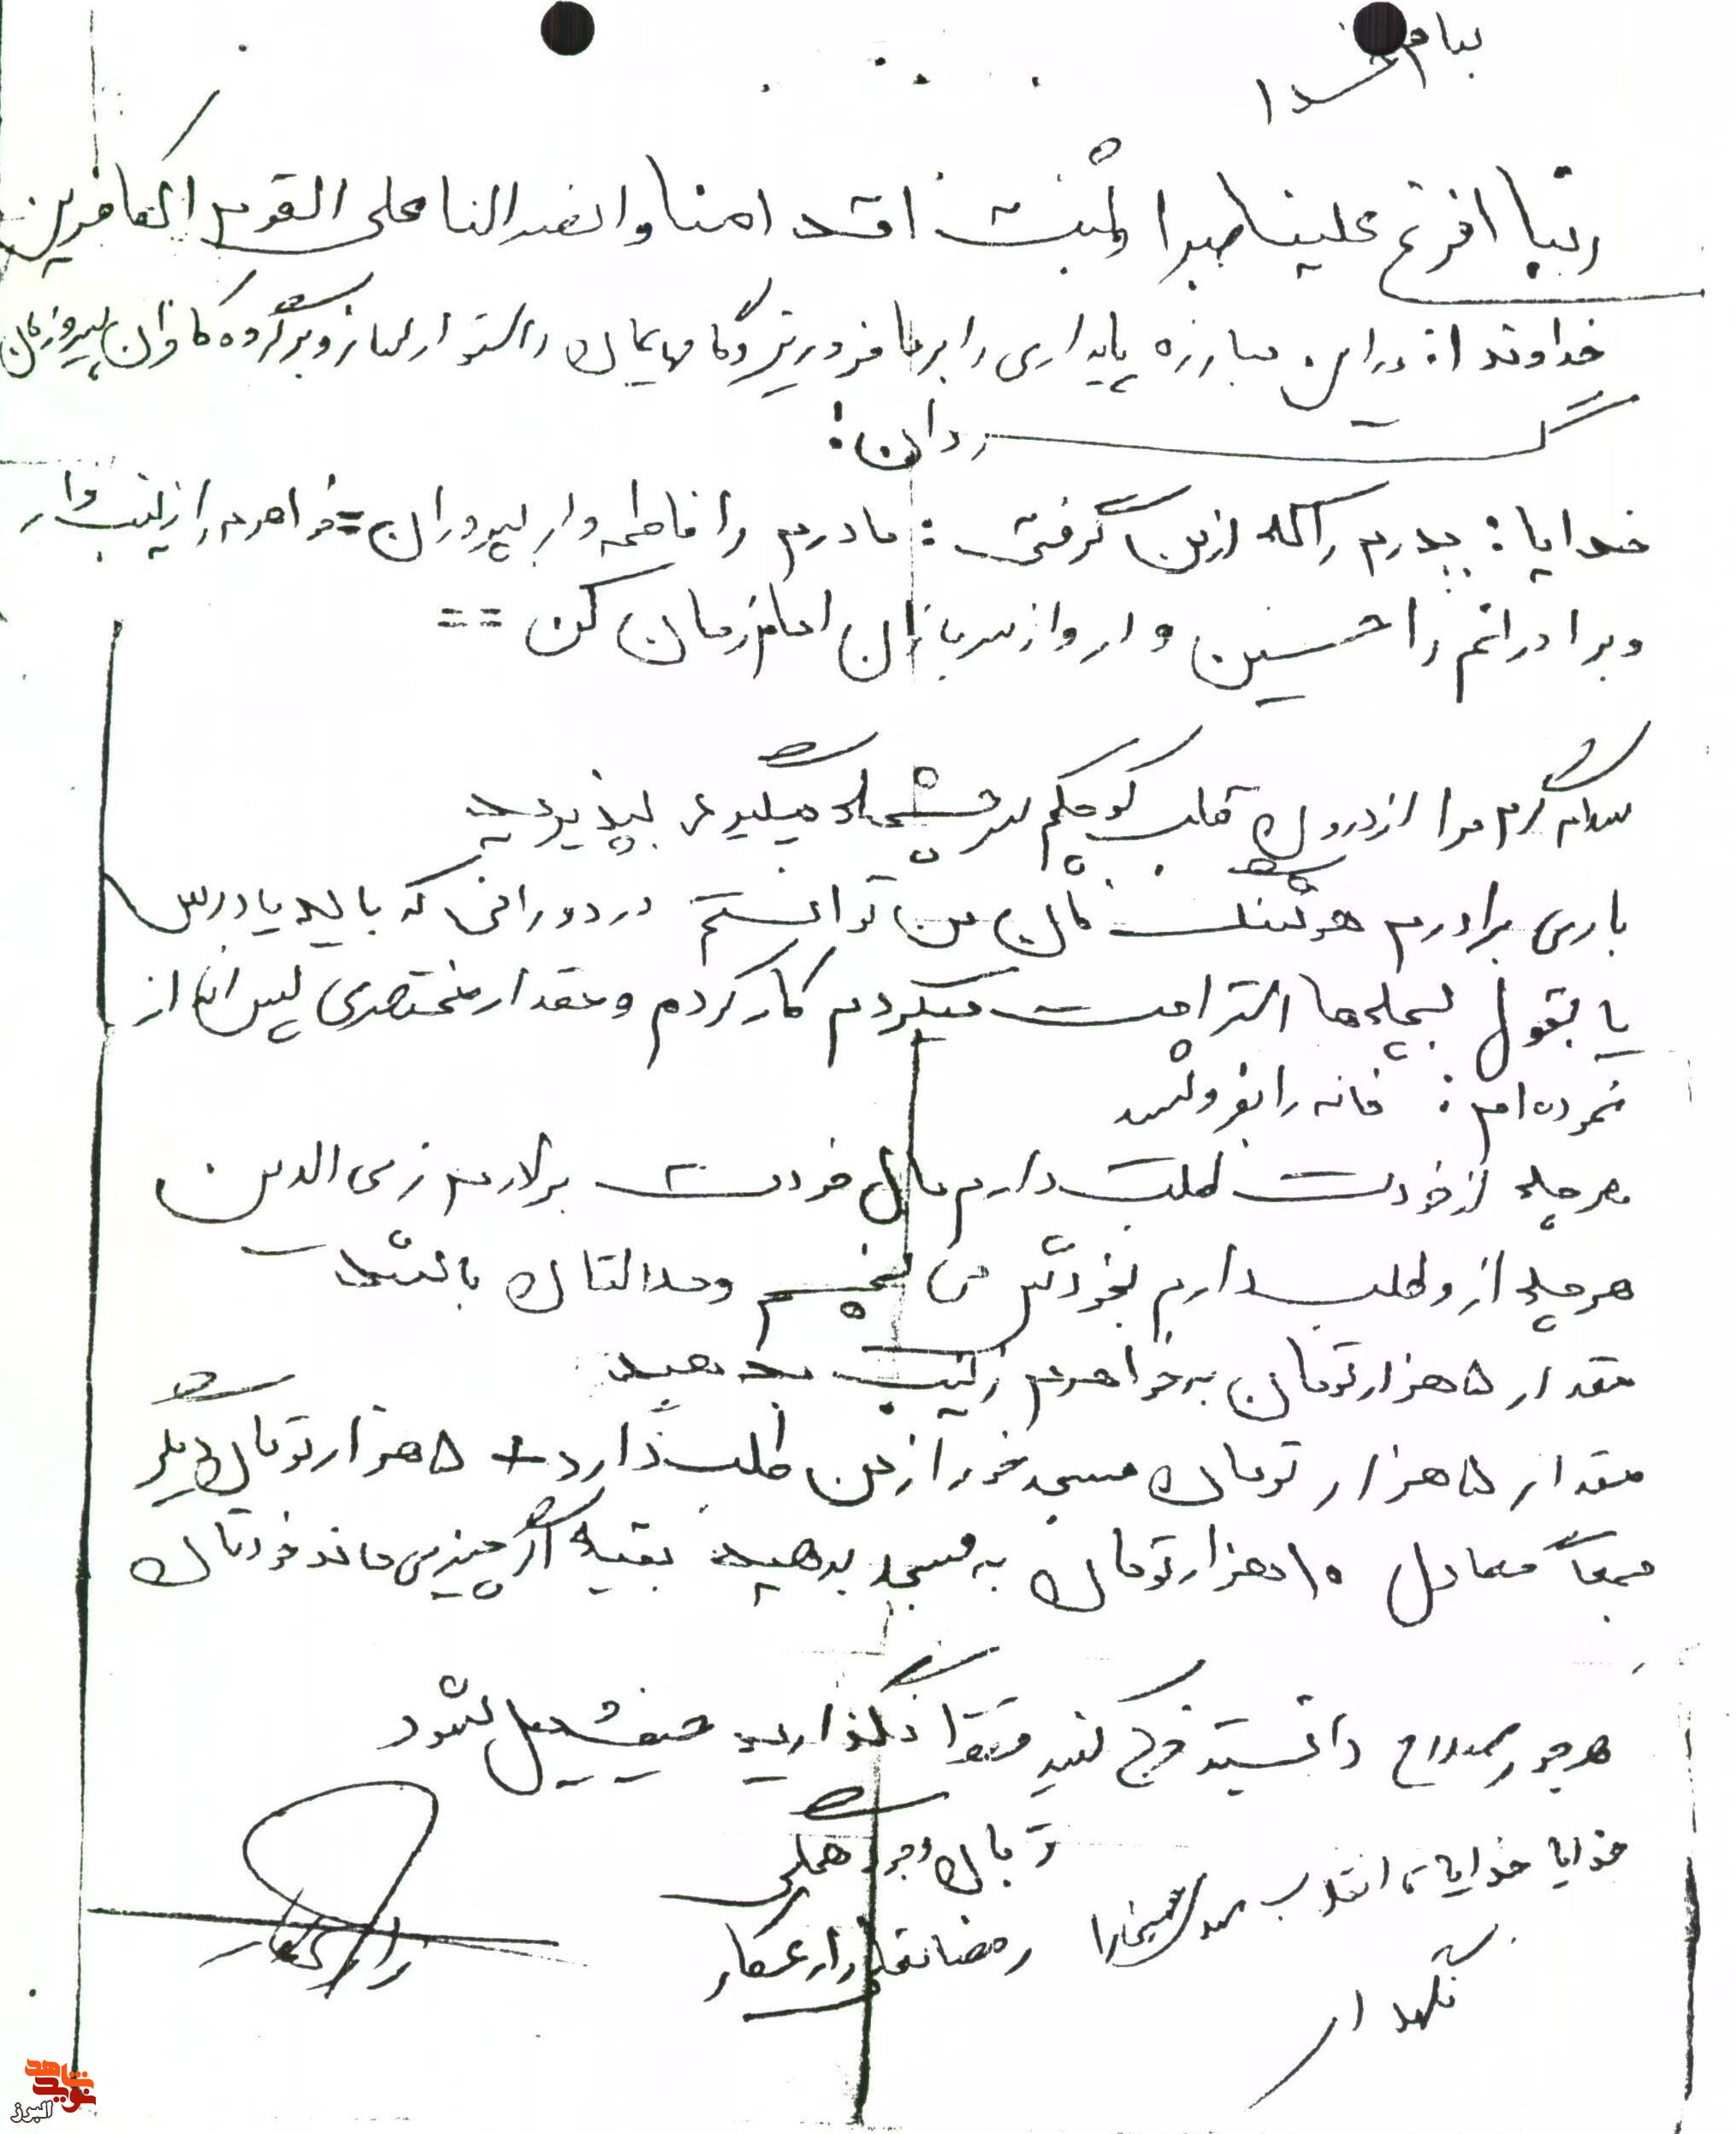 بنام خدا
ربنا افرغ علینا صبرا و ثبت اقد امنا وانصرالنا علی القوم الکافرین
خداوندا: در این مبارزه پایداری را بر ما فرو ریز و گامهایمان را استوار ساز و بر گروه کافران پیروزمان
گردان:
خدایا: پدرم را که از من گرفتی: مادرم را فاطمه وار بپروران = خواهرم را زینب وار
و برادرانم را حسین وار و از سربازان امام زمان کن ==
سلام گرم مرا از درون قلب کوچکم سرچشمه میگیرد بپذیرید
باری برادرم هوشنگ جان من توانستم در دورانی که باید یا درس
یا بقول بچه ها استراحت میکردم کار کردم و مقدار مختصری پس انداز
نموده ام: خانه را بفروشید
هر چه از خودت طلب دارم مال خودت برادرم زین الدین
هر چه از او طلب دارم بخودش می بخشم و حلالتان باشد
مقدار ۵ هزار تومان به خواهرم زینب بدهید
مقدار ۵ هزار تومان مسجد خود از من طلب دارد + ۵ هزار تومان دیگر
جمعاً معادل ۱۰ هزار تومان به مسجد بدهید بقیه اگر چیزی ماند خودتان
هر جور صلاح دانستید خرج کنید فقط نگذارید حیف و میل شود
خدایا خدایا تا انقلاب مهدی خمینی را
نگهدار
قربان وجود همگی
رمضانعلی زارع کار
زارع کار
نوید شاهد
البرز